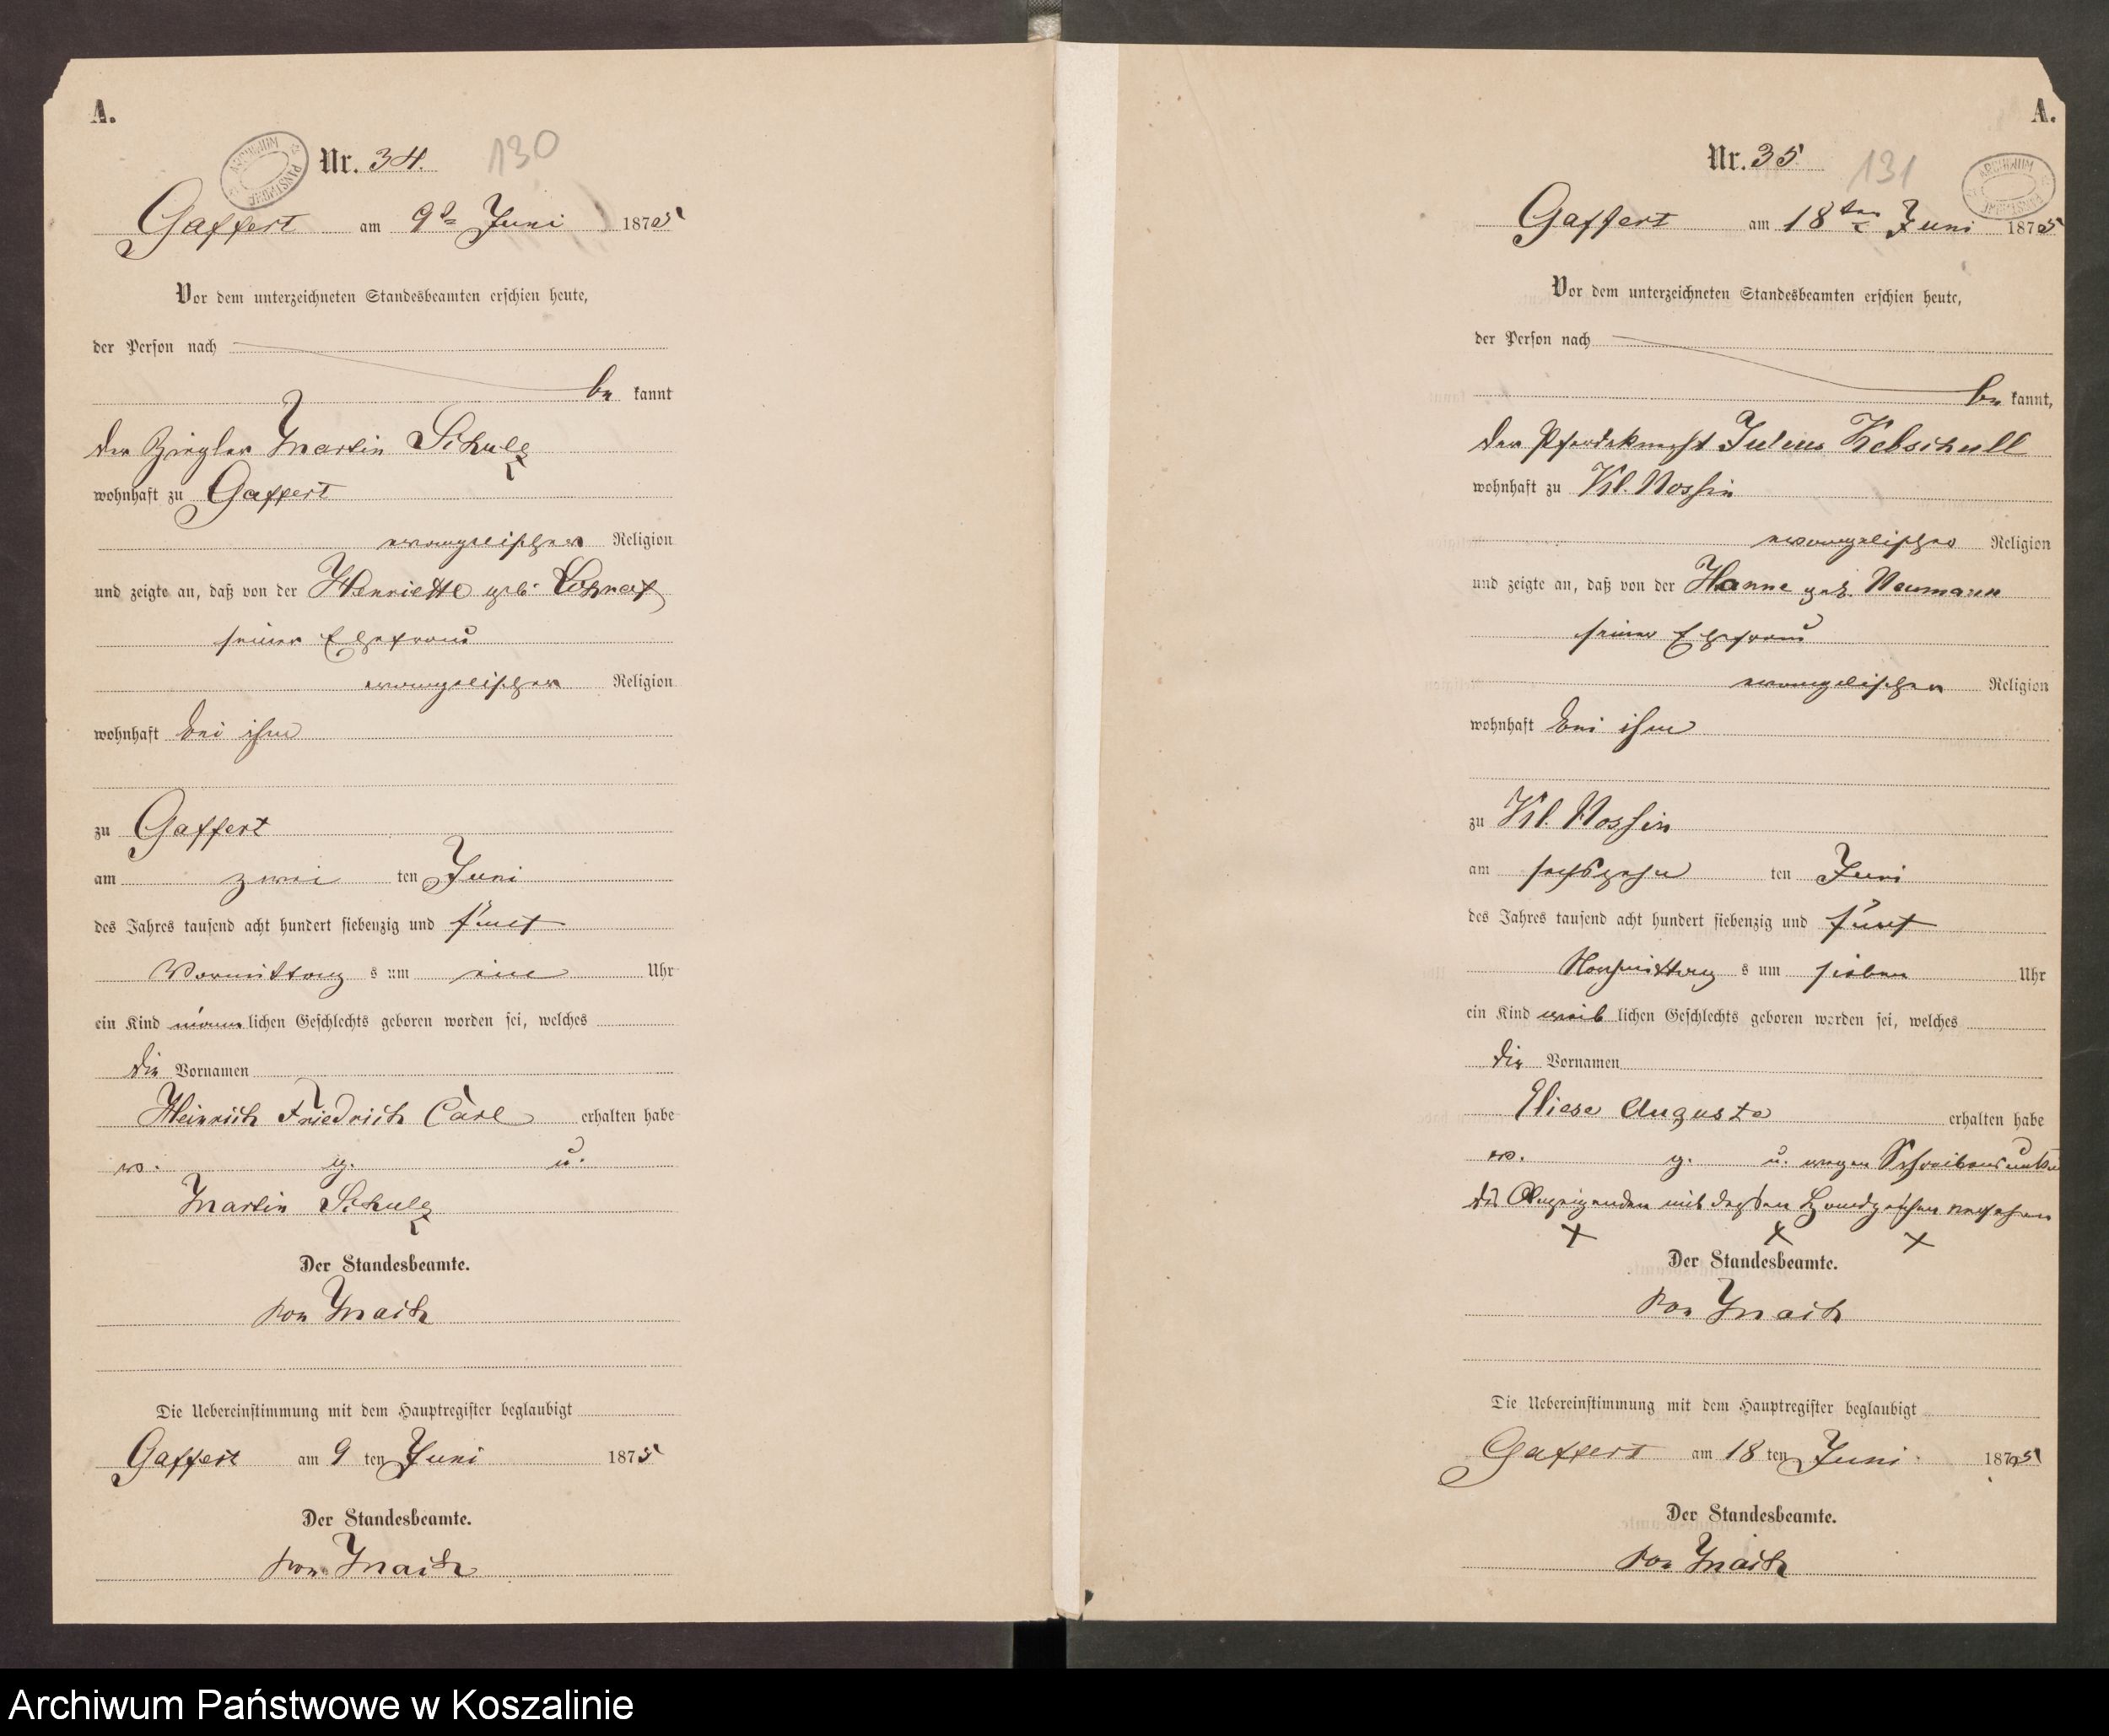 A.
Nr. 34. 130
ARCHIWUM PAŃSTWOWE
Gaffert am 9t Juni 1875
Vor dem unterzeichneten Standesbeamten erschien heute,
der Person nach
be kannt
der Ziegler Martin Schulz
wohnhaft zu Gaffert
evangelischer Religion
und zeigte an, daß von der Henriette geb.
seiner Ehefrau
evangelischer Religion
wohnhaft bei ihm
zu Gaffert
am zwei ten Juni
des Jahres tausend acht hundert siebenzig und fünf
Vormittag s um ein Uhr
ein Kind männ lichen Geschlechts geboren worden sei, welches
die Vornamen
Heinrich Friedrich Carl erhalten habe
v. g. u.
Martin Schulz
Der Standesbeamte.
von
Die Uebereinstimmung mit dem Hauptregister beglaubigt
Gaffert am 9 ten Juni 1875
Der Standesbeamte.
von
A.
Nr. 35 131
ARCHIWUM PAŃSTWOWE
Gaffert am 18ten Juni 1875
Vor dem unterzeichneten Standesbeamten erschien heute,
der Person nach
be kannt,
der Pferdeknecht Julius Kebschull
wohnhaft zu Kl. Nossin
evangelischer Religion
und zeigte an, daß von der Hanne geb. Neumann
seiner Ehefrau
evangelischer Religion
wohnhaft bei ihm
zu Kl. Nossin
am sechszehn ten Juni
des Jahres tausend acht hundert siebenzig und fünf
Nachmittag s um sieben Uhr
ein Kind weib lichen Geschlechts geboren worden sei, welches
die Vornamen
Eliese Auguste erhalten habe
v. g. u. wegen Schreibensunk
des Anzeigenden mit dessen Handzeichen versehen
X X X
Der Standesbeamte.
von
Die Uebereinstimmung mit dem Hauptregister beglaubigt
Gaffert am 18 ten Juni 1875
Der Standesbeamte.
von
Archiwum Państwowe w Koszalinie